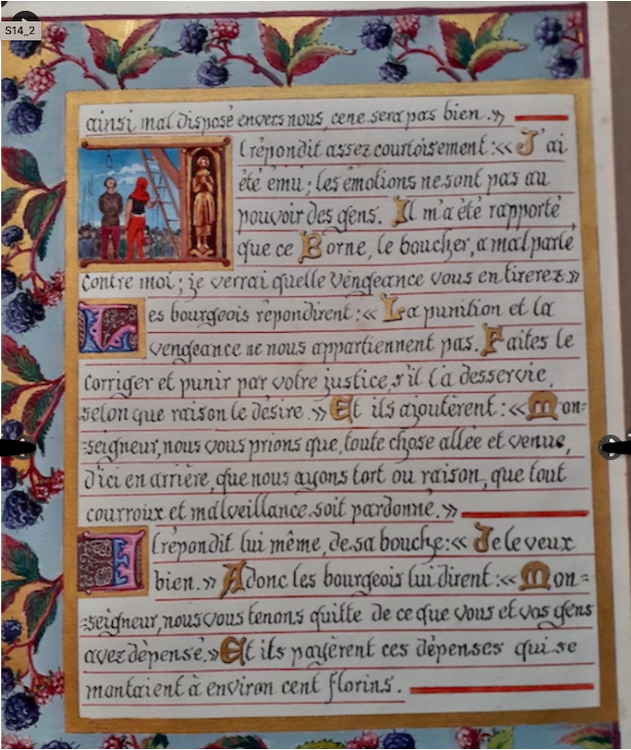 S14_2
ainsi mal disposé envers nous, ce ne sera pas bien.»
Il répondit assez courtoisement: «J'ai
été ému; les émotions ne sont pas au
pouvoir des gens. Il m'a été rapporté
que ce Borne, le boucher, a mal parlé
contre moi; je verrai quelle vengeance vous en tirerez.»
Les bourgeois répondirent: «La punition et la
vengeance ne nous appartiennent pas. Faites le
corriger et punir par votre justice, s'il l'a desservie,
selon que raison le désire.» Et ils ajoutèrent: «Mon=
=seigneur, nous vous prions que, toute chose allée et venue,
d'ici en arrière, que nous ayons tort ou raison, que tout
courroux et malveillance soit pardonné.»
Il répondit lui même, de sa bouche: «Je le veux
bien.» Adonc les bourgeois lui dirent: «Mon=
=seigneur, nous vous tenons quitte de ce que vous et vos gens
avez dépensé.» Et ils payèrent ces dépenses qui se
montaient à environ cent florins.